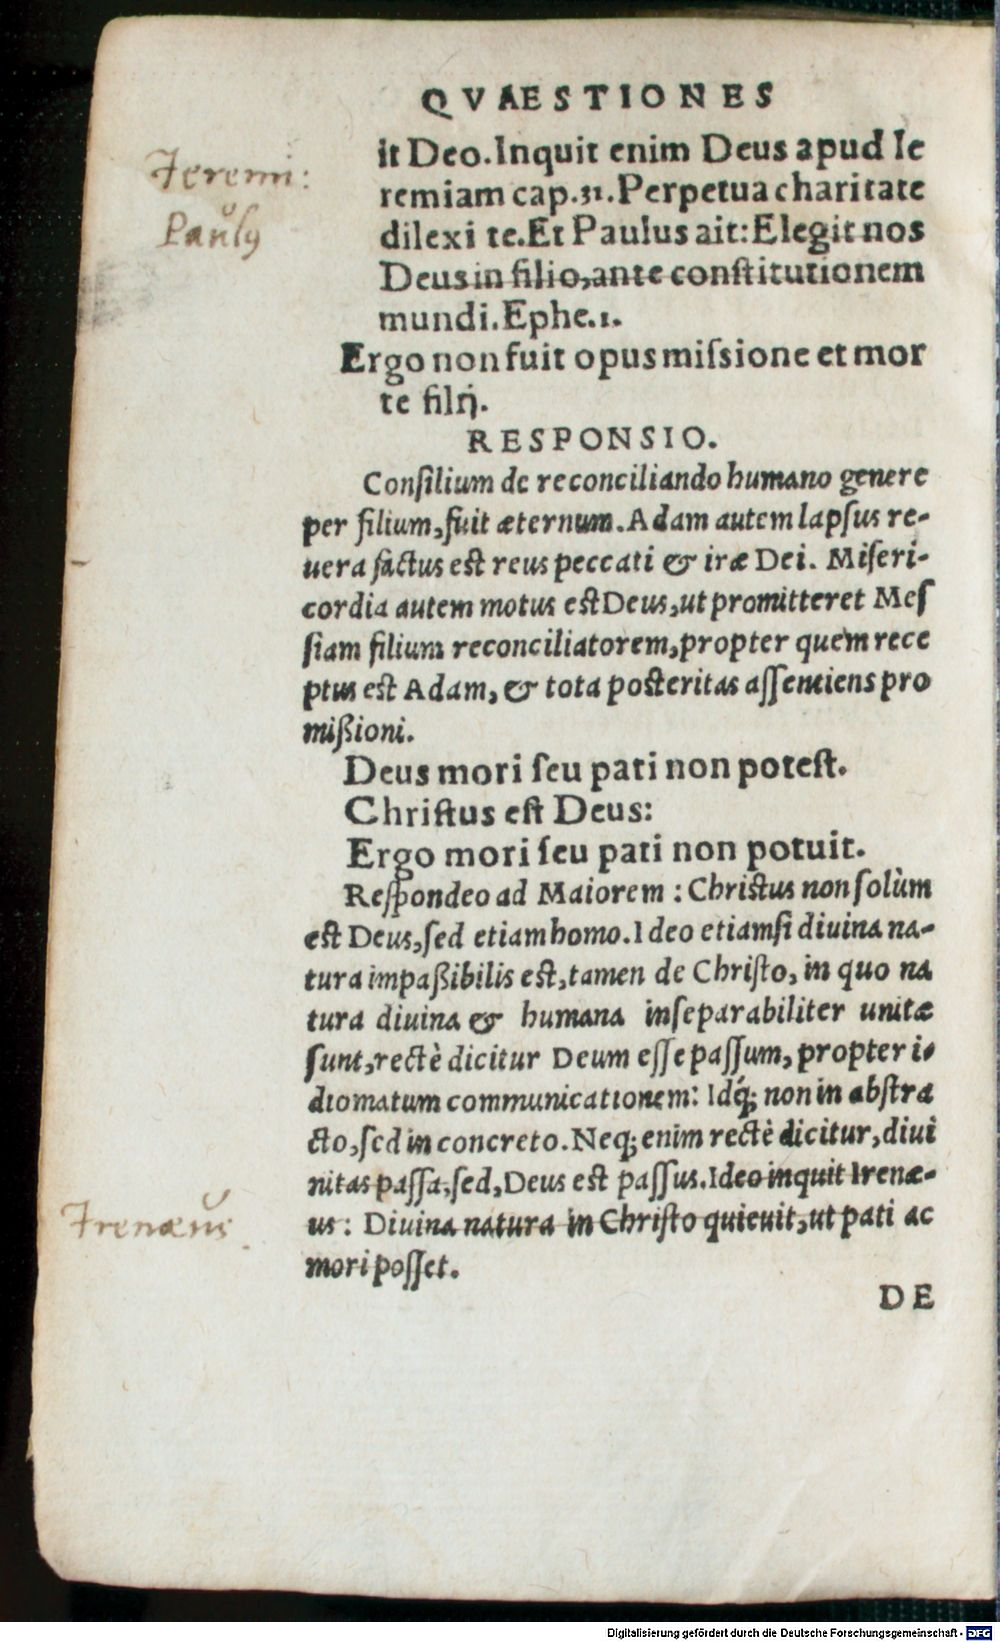 QVAESTIONES
it Deo. Inquit enim Deus apud Ie
remiam cap. 31. Perpetua charitate
dilexi te. Et Paulus ait: Elegit nos
Deus in filio, ante constitutionem
mundi. Ephe. 1.
Ergo non fuit opus missione et mor
te filij.
RESPONSIO.
Consilium de reconciliando humano genere
per filium, fuit æternum. Adam autem lapsus re-
uera factus est reus peccati & iræ Dei. Miseri-
cordia autem motus est Deus, ut promitteret Mes
siam filium reconciliatorem, propter quem rece
ptus est Adam, & tota posteritas assentiens pro
mißioni.
Deus mori seu pati non potest.
Christus est Deus:
Ergo mori seu pati non potuit.
Respondeo ad Maiorem: Christus non solùm
est Deus, sed etiam homo. Ideo etiamsi diuina na-
tura impaßibilis est, tamen de Christo, in quo na
tura diuina & humana inseparabiliter unitæ
sunt, rectè dicitur Deum esse passum, propter i-
diomatum communicationem: Idq́; non in abstra
cto, sed in concreto. Neq; enim rectè dicitur, diui
nitas passa, sed, Deus est passus. Ideo inquit Irenæ-
us: Diuina natura in Christo quieuit, ut pati ac
mori posset.
DE
Jeremi:
Paulq
Irenæus.
Digitalisierung gefördert durch die Deutsche Forschungsgemeinschaft - DFG